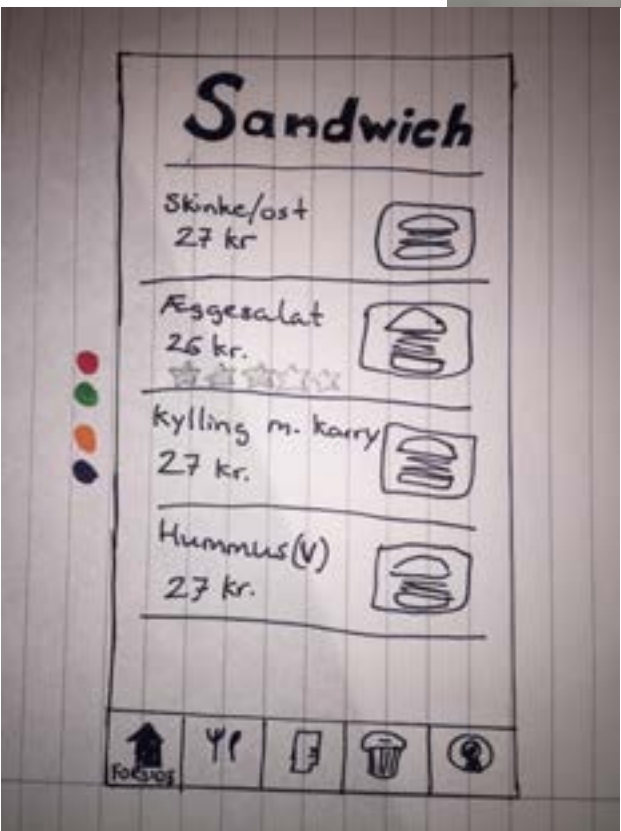 Sandwich
Skinke/ost
27 kr
Æggesalat
26 kr.
Kylling m. karry
27 kr.
Hummus(V)
27 kr.
FORSIDE